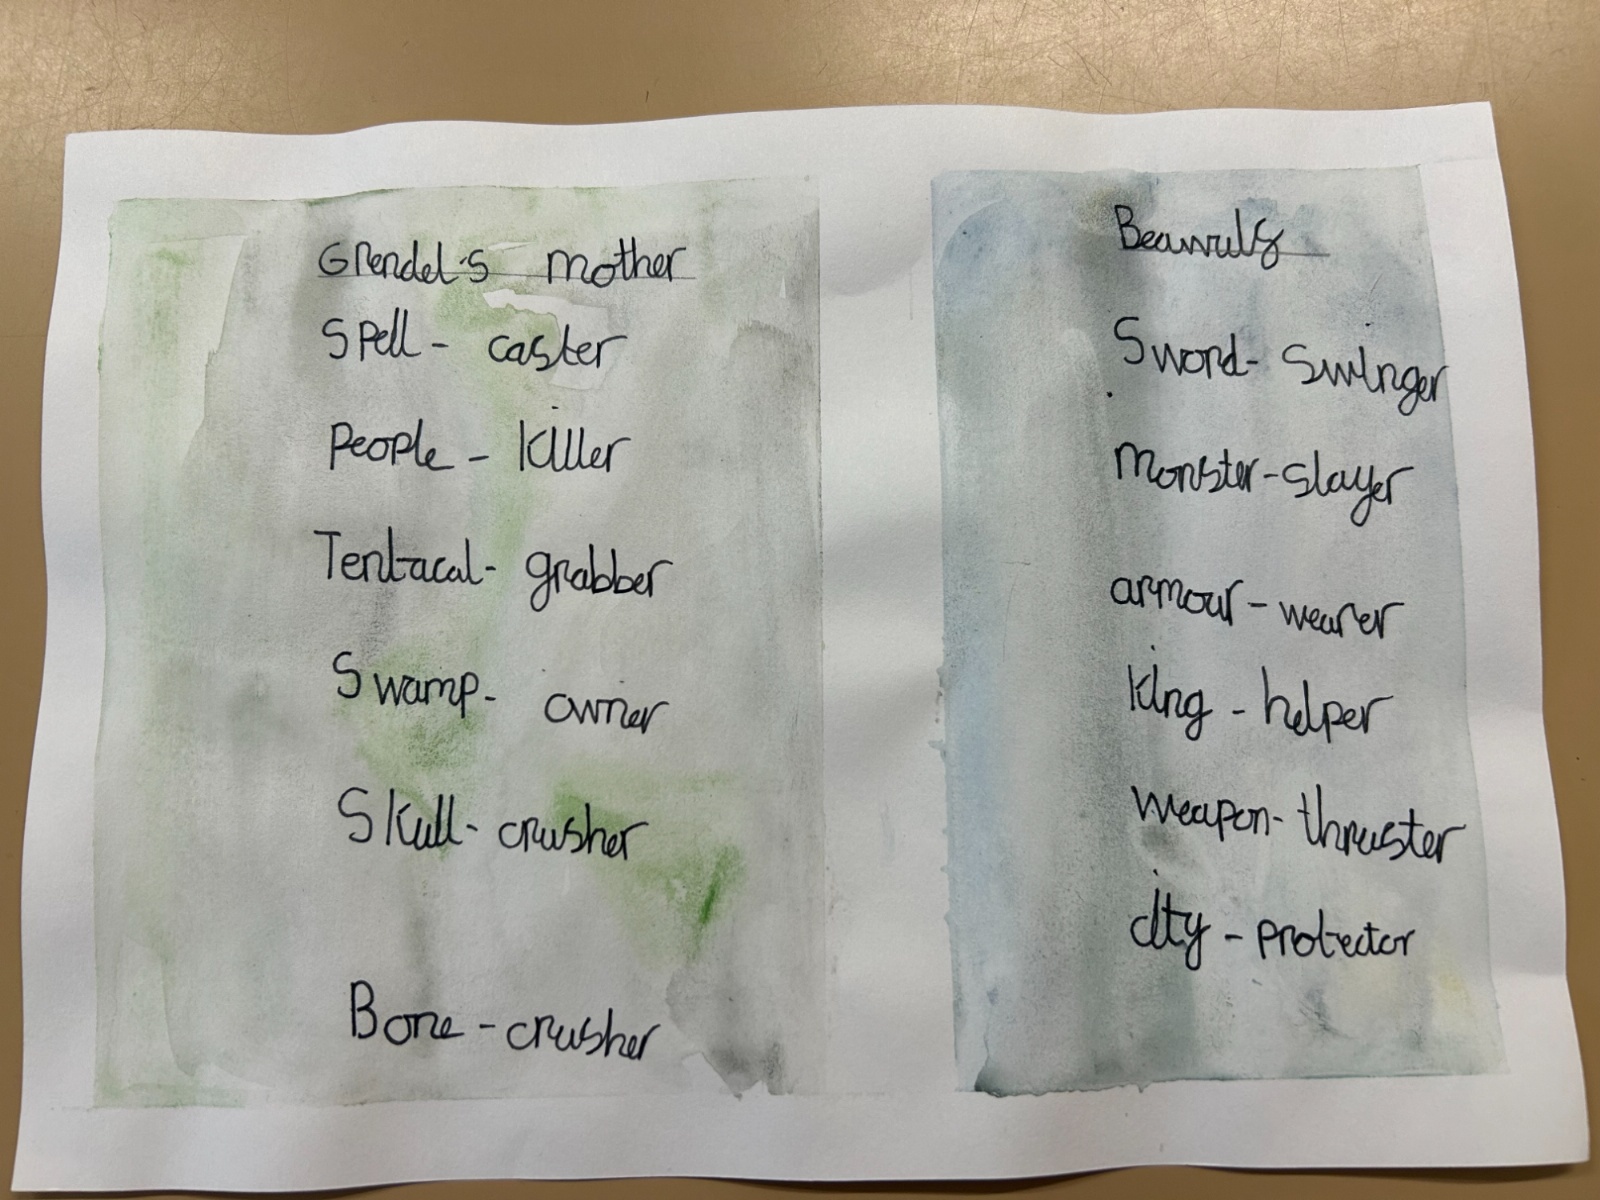 Grendel's mother
Spell - caster
People - killer
Tentacal - grabber
Swamp - owner
Skull - crusher
Bone - crusher
Beawulf
Sword - swinger
monster - slayer
armour - wearer
king - helper
weapon - thruster
city - protector